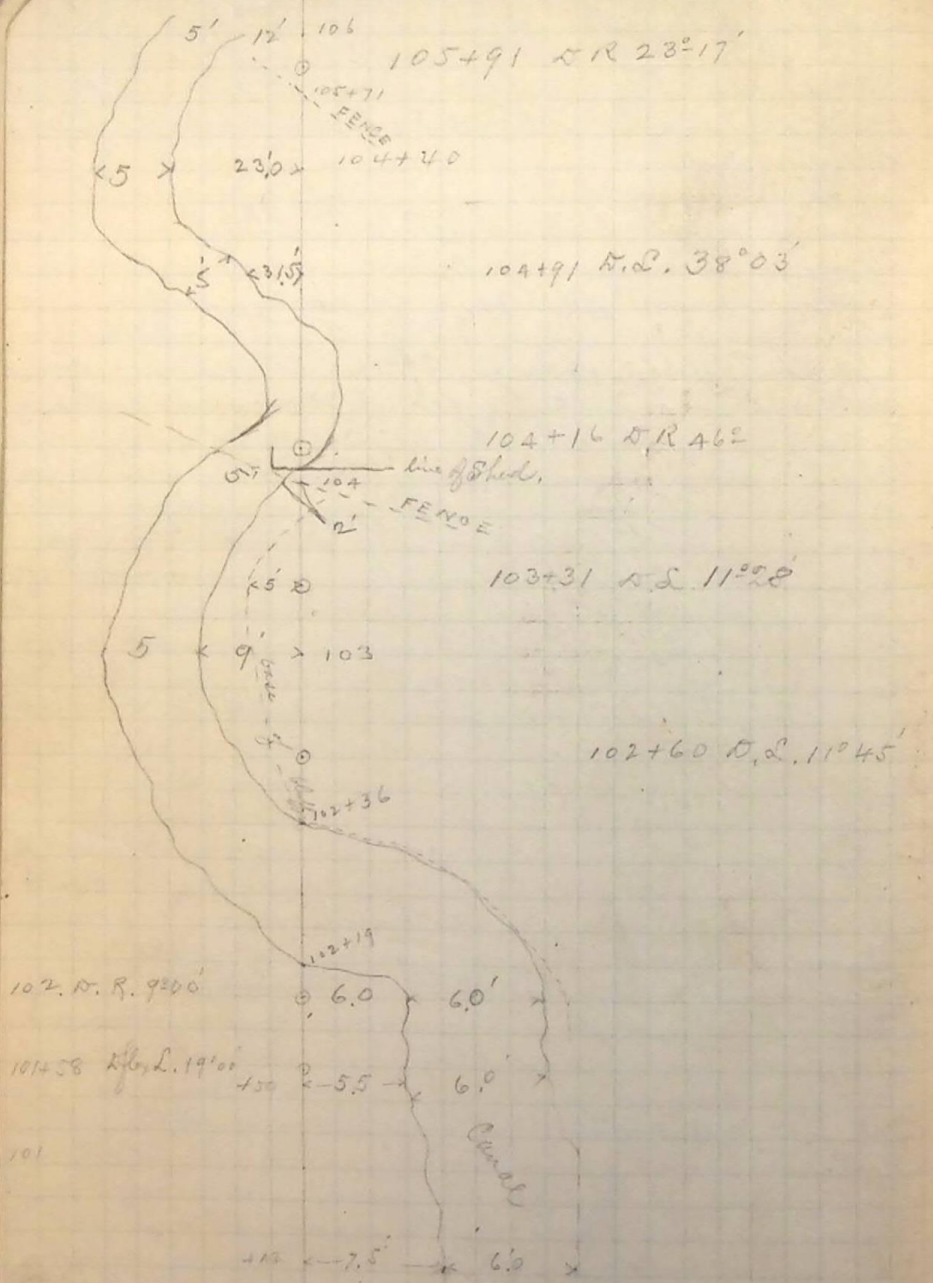 5' 12' 106
105+91 D R 23°-17'
105+71
FENCE
5 23.0 104+40
5' 31.5'
104+91 D.L. 38°03'
104+16 D.R 46°
line of Shed.
5' 104
FENCE
2'
5'
103+31 D.L. 11°28'
5 9' 103
base of
102+60 D.L. 11°45'
102+36
102+19
102. D. R. 9°00' 6.0 6.0'
101+58 Defl. L. 19°00' +50 5.5 6.0'
Canal
101
7.5' 6.0